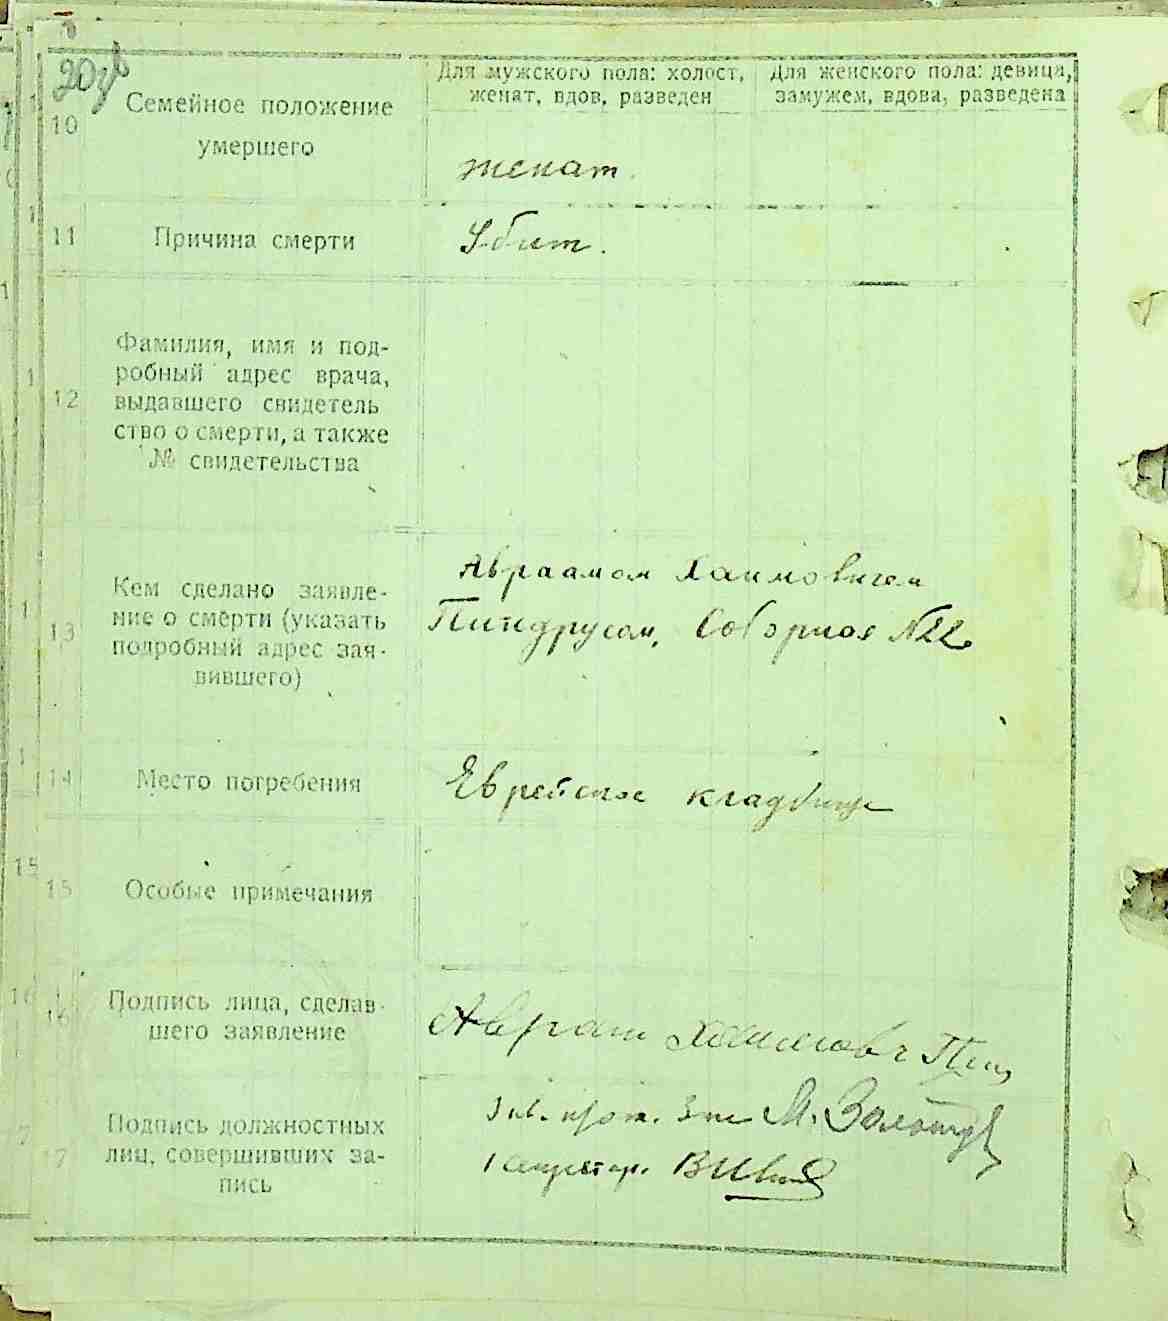 20
10
Семейное положение
умершего
Для мужского пола: холост,
женат, вдов, разведен
Для женского пола: девица,
замужем, вдова, разведена
женат.
11
Причина смерти
Убит.
12
Фамилия, имя и под-
робный адрес врача,
выдавшего свидетель
ство о смерти, а также
№ свидетельства
13
Кем сделано заявле-
ние о смерти (указать
подробный адрес зая-
вившего)
Авраамом Хаимовичем
Пиндрусом, Соборная №22
14
Место погребения
Еврейское кладбище
15
15
Особые примечания
16
16
Подпись лица, сделав-
шего заявление
Авраам Хаимович
17
Подпись должностных
лиц, совершивших за-
пись
М.
секретарь